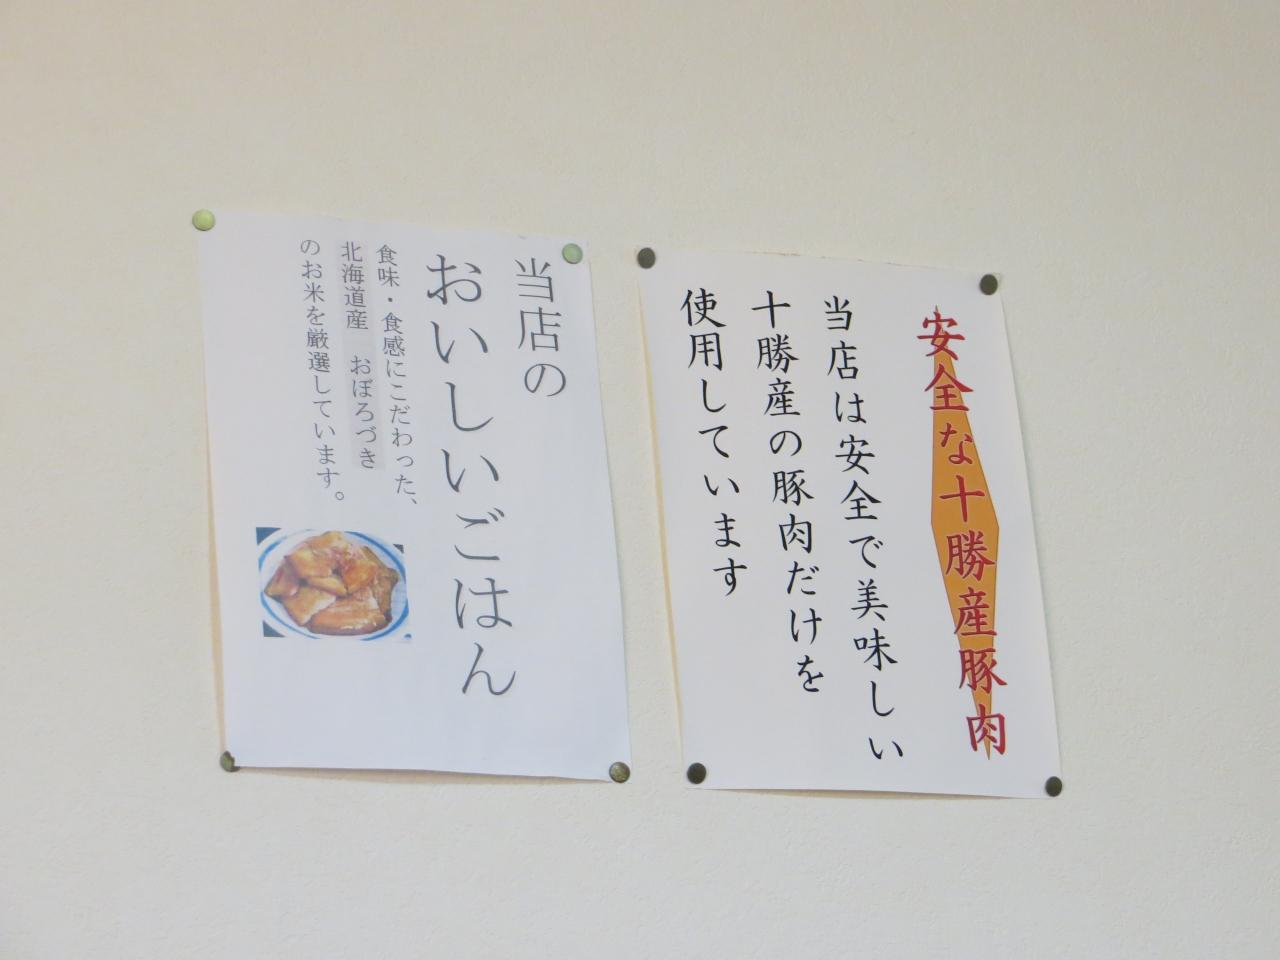 安全な十勝産豚肉
当店は安全で美味しい
十勝産の豚肉だけを
使用しています
当店の
おいしいごはん
食味・食感にこだわった、
北海道産　おぼろづき
のお米を厳選しています。